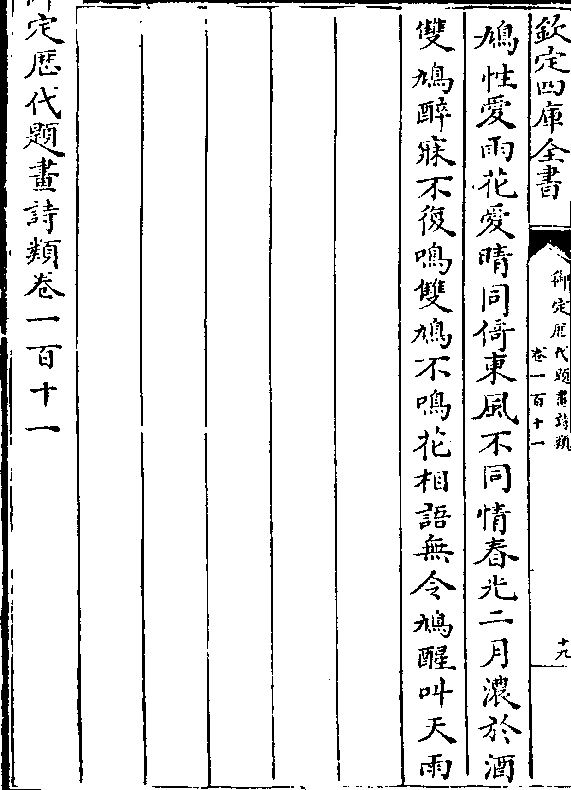 欽定四庫全書
御定歴代題畫詩類
卷一百十一
十九
鳩性愛雨花愛晴同倚東風不同情春光二月濃於酒
雙鳩醉寐不復鳴雙鳩不鳴花相語無令鳩醒叫天雨
御定歴代題畫詩類卷一百十一